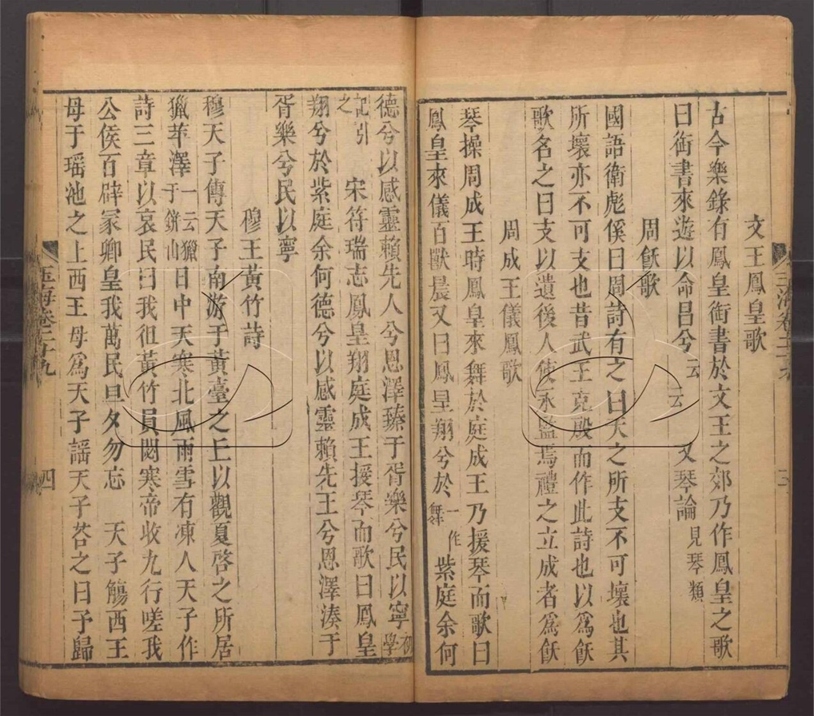 文王鳳皇歌
古今樂錄有鳳皇銜書於文王之郊乃作鳳皇之歌
曰銜書來遊以命昌兮云云 又琴論見琴類
周飫歌
國語衛彪傒曰周詩有之曰天之所支不可壞也其
所壞亦不可支也昔武王克殷而作此詩也以為飫
歌名之曰支以遺後人使永監焉禮之立成者為飫
周成王儀鳳歌
琴操周成王時鳳皇來舞於庭成王乃援琴而歌曰
鳳皇來儀百獸晨又曰鳳皇翔兮於一作舞紫庭余何
德兮以感靈賴先人兮恩澤臻于胥樂兮民以寧初學
記引之 宋符瑞志鳳皇翔庭成王援琴而歌曰鳳皇
翔兮於紫庭余何德兮以感靈賴先王兮恩澤湊于
胥樂兮民以寧
穆王黃竹詩
穆天子傳天子南游于黃臺之丘以觀夏啓之所居
獵苹澤一云獵于鈃山日中大寒北風雨雪有凍人天子作
詩三章以哀民曰我徂黃竹員閟寒帝收九行嗟我
公侯百辟冢卿皇我萬民旦夕勿忘 天子觴西王
母于瑶池之上西王母為天子謡天子荅之曰予歸
玉海卷二十九
四